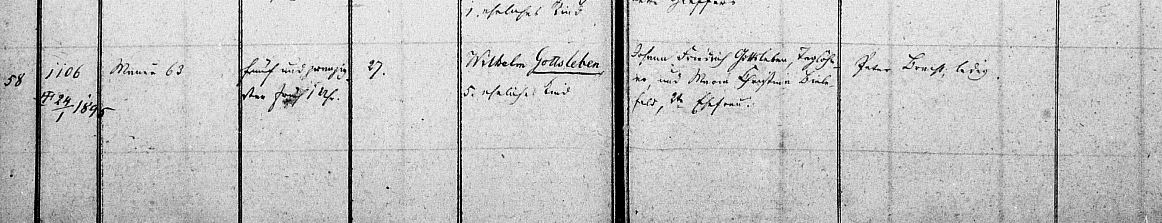 1. eheliches Kind
58
1106
Mauer 63
fünf und zwanzig-
ster früh 1 Uhr.
27.
Wilhelm Gottsleben,
5. eheliches Kind
Johann Friedrich Gottsleben, Taglöh-
ner, und Maria Christina Biele-
feld, Ehefrau.
Peter Bracht, ledig.
24/1 1895